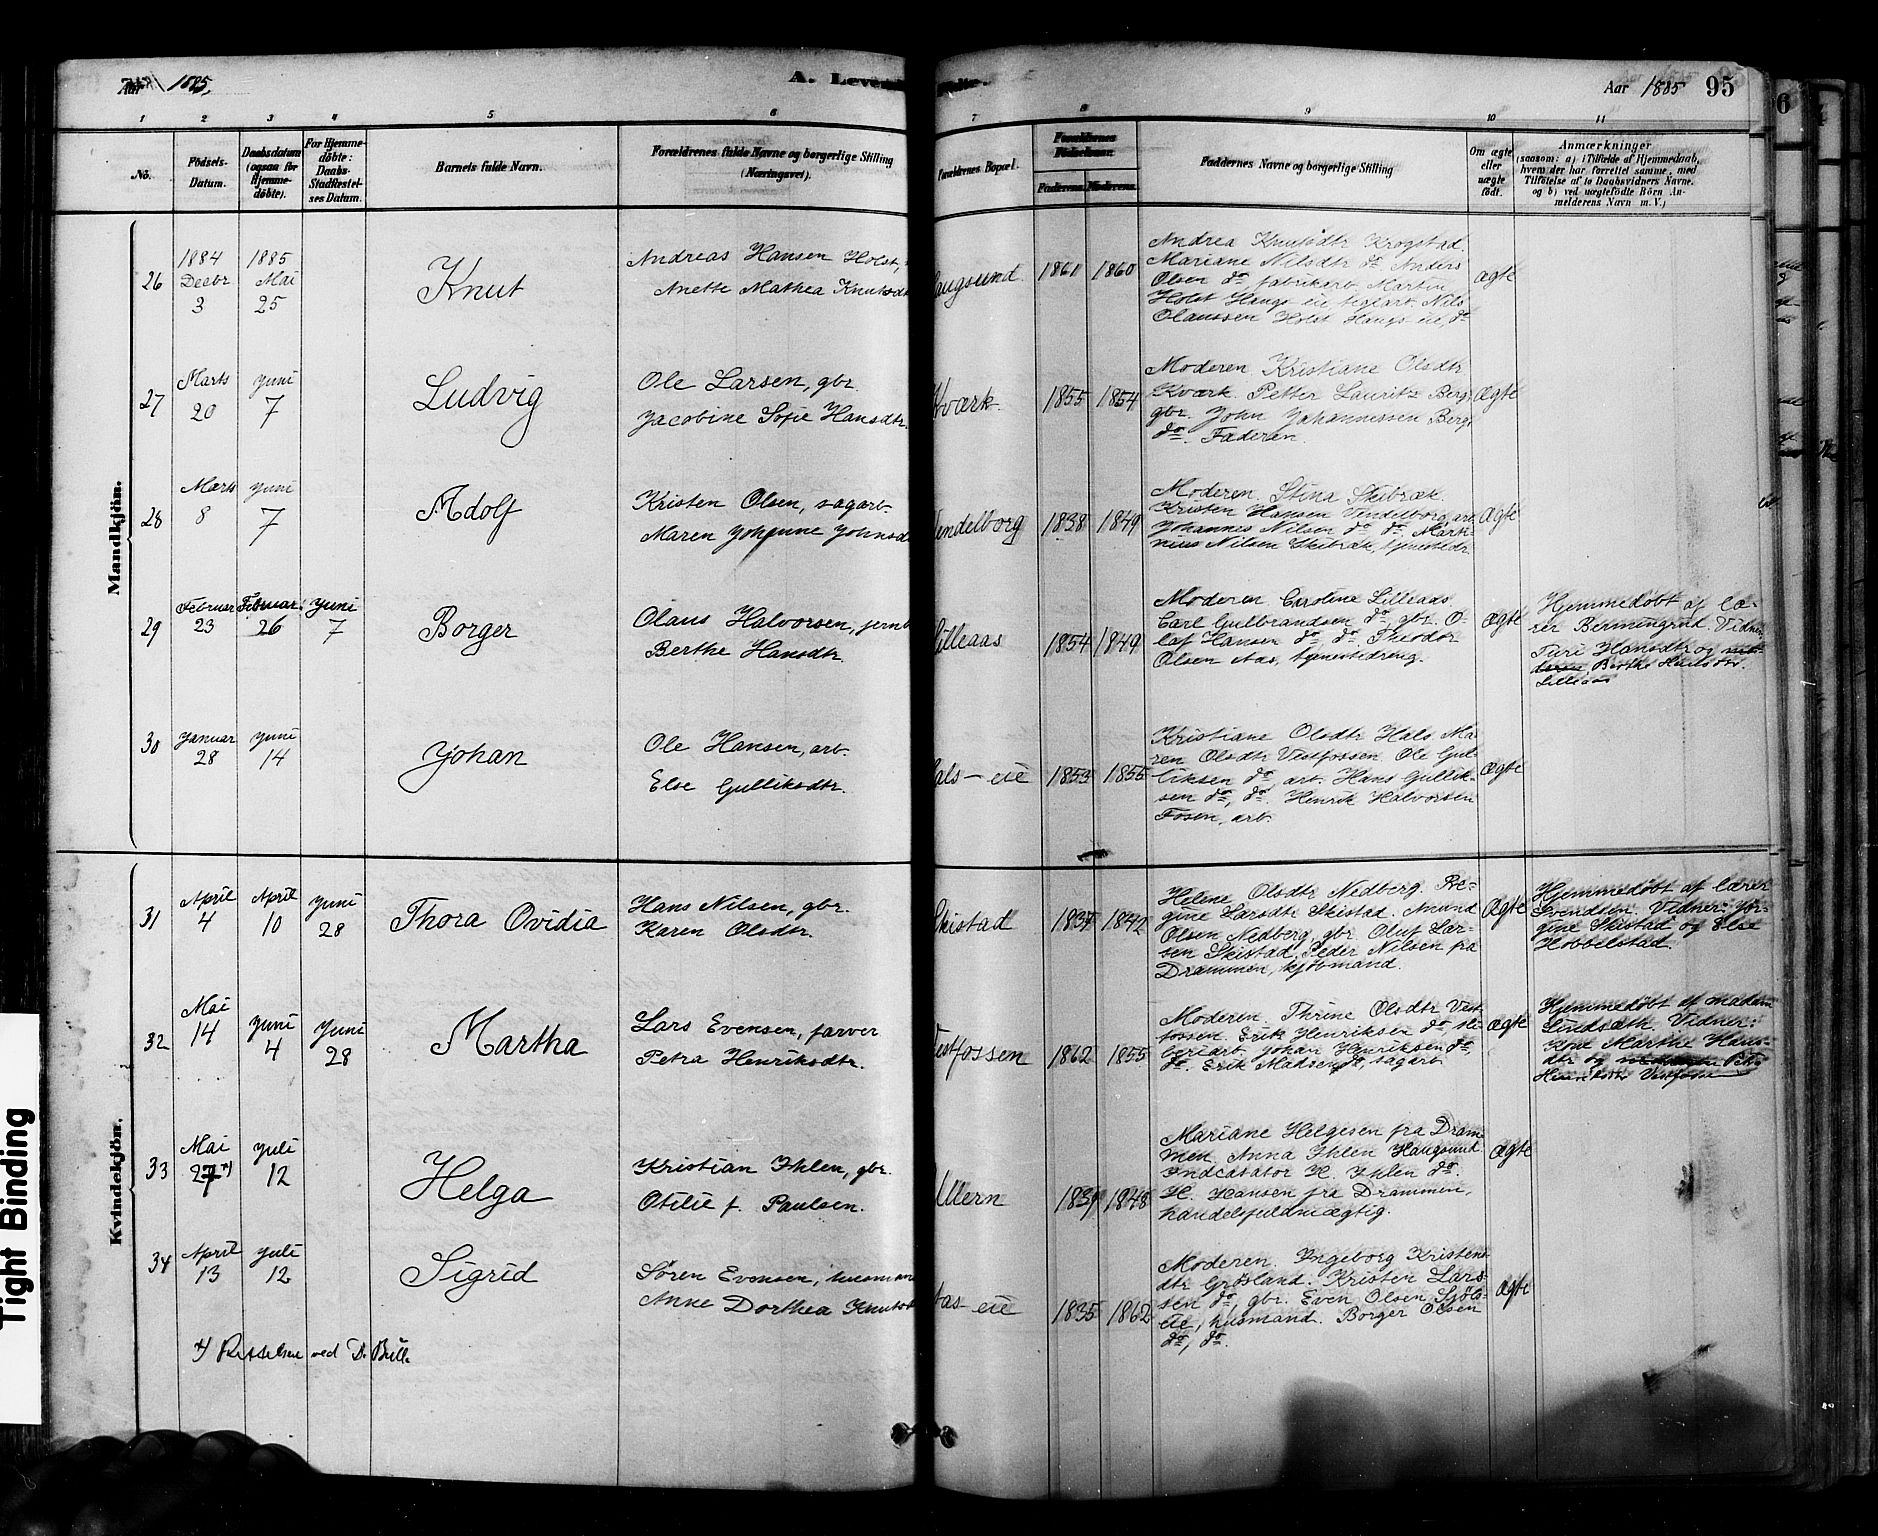 Aar 1885.
A. Levende
Aar 1885 95
1 2 3 4 5 6 7 8 9 10 11
No.
Födsels-Datum.
Daabsdatum (ogsaa for Hjemmedöbte).
For Hjemmedöbte: Daabs-Stadfæstelses Datum.
Barnets fulde Navn.
Forældrenes fulde Navne og borgerlige Stilling (Næringsvei).
Forældrenes Bopæl.
Forældrenes Födselsaar.
Faderens. Moderens.
Faddernes Navne og borgerlige Stilling
Om ægte eller uægte födt.
Anmærkninger
(saasom: a) i Tilfælde af Hjemmedaab,
hvem der har forrettet samme, med
Tilföielse af to Daabsvidners Navne.
og b) ved uægtefödte Börn An-
melderens Navn m. V.)
Mandkjön.
26
1884 Decbr 3
1885 Mai 25
Knut
Andreas Hansen Holst,
Anette Mathea Knutsdt
augsund
1861 1860
Andrea Knutsdtr Krogstad
Mariane Nilsdtr do. Anders
Olsen do, fabrikarb. Martin
Holst Haugs-eie teglarb. Nils
Olaussen Holst Haugs-eie, do
ægte
27
Marts 20
Juni 7
Ludvig
Ole Larsen, gbr.
Jacobine Sofie Hansdtr.
Kværk.
1855 1854
Moderen. Kristiane Olsdtr
Kværk. Petter Lauritz Berg,
gbr. John Johannessen Berg,
do. Faderen.
Ægte
28
Marts 8
Juni 7
Adolf
Kristen Olsen, sagarb.
Maren Johanne Johnsd
Vendelborg
1838 1849
Moderen. Stina Skibræk.
Kristen Hansen Vendelborg, arb
Johannes Nilsen do do. Marti-
nius Nilsen Skibræk, tjenestedr
Ægte
29
Februar 23
Februar 26
Juni 7
Borger
Olaus Halvorsen, jernb
Berthe Hansdtr.
Lilleaas
1854 1849
Moderen Caroline Lilleaas
Carl Gulbrandsen do, gbr. O-
laf Hansen do do. Theodor
Olsen Aas, tjenestedreng.
Ægte
Hjemmedöbt af læ-
rer Benmingrud. Vidner:
Turi Hansdtr og
Berthe Hansdtr.
Lilleaas
30
Januar 28
Juni 14
Johan
Ole Hansen, arb.
Else Gulliksdtr.
als-eie
1853 1855
Kristiane Olsdtr Hals Ma-
ren Olsdtr Vestfossen Ole Gul-
liksen do, arb. Hans Gullik-
sen do, do. Henrik Halvorsen
Fosen, arb.
Ægte
Kvindekjön.
31
April 4
April 10
Juni 28
Thora Ovidia
Hans Nilsen, gbr.
Karen Olsdtr.
Skistad
1837 1842
Helene Olsdtr Nedberg. Re-
gine Larsdtr Skistad. Amund
Olsen Nedberg, gbr. Oluf Lar-
sen Skistad. Peder Nilsen fra
Drammen, kjöbmand.
Ægte
Hjemmedöbt af lærer
Svendsen. Vidner: Jör-
gine Skistad og Else
Hobbelstad.
32
Mai 14
Juni 4
Juni 28
Martha
Lars Evensen, farver
Petra Henriksdtr.
Vestfossen
1862 1855
Moderen. Thrine Olsdtr Vest-
fossen. Erik Henriksen do
Johan Henriksen do,
do. Erik Madsen do, sagarb.
Ægte
Hjemmedöbt af madam
Lindsæth. Vidner:
Kone Marthe Hans-
dtr og Petra
Henriksdtr Vestfossen
33
Mai 27*)
Juli 12
Helga
Kristian Ihlen, gbr.
Otilie f. Paulsen.
Ullern
1839 1848
Mariane Helgesen fra Dram-
men. Anna Ihlen Haugsund
H. Ihlen do.
H. Hansen fra Drammen,
handelsfuldmægtig.
Ægte
34
April 13
Juli 12
Sigrid
Sören Evensen, husman
Anne Dorthea Knutsd
as-eie
1835 1862
Moderen. Ingeborg Kristens-
dtr Grösland. Kristen Lars-
sen do, gbr. Even Olsen Sjöls-
eie, husmand. Borger Olsen
do, do.
Ægte
*) Rettelsen ved D. Bull.
Tight Binding